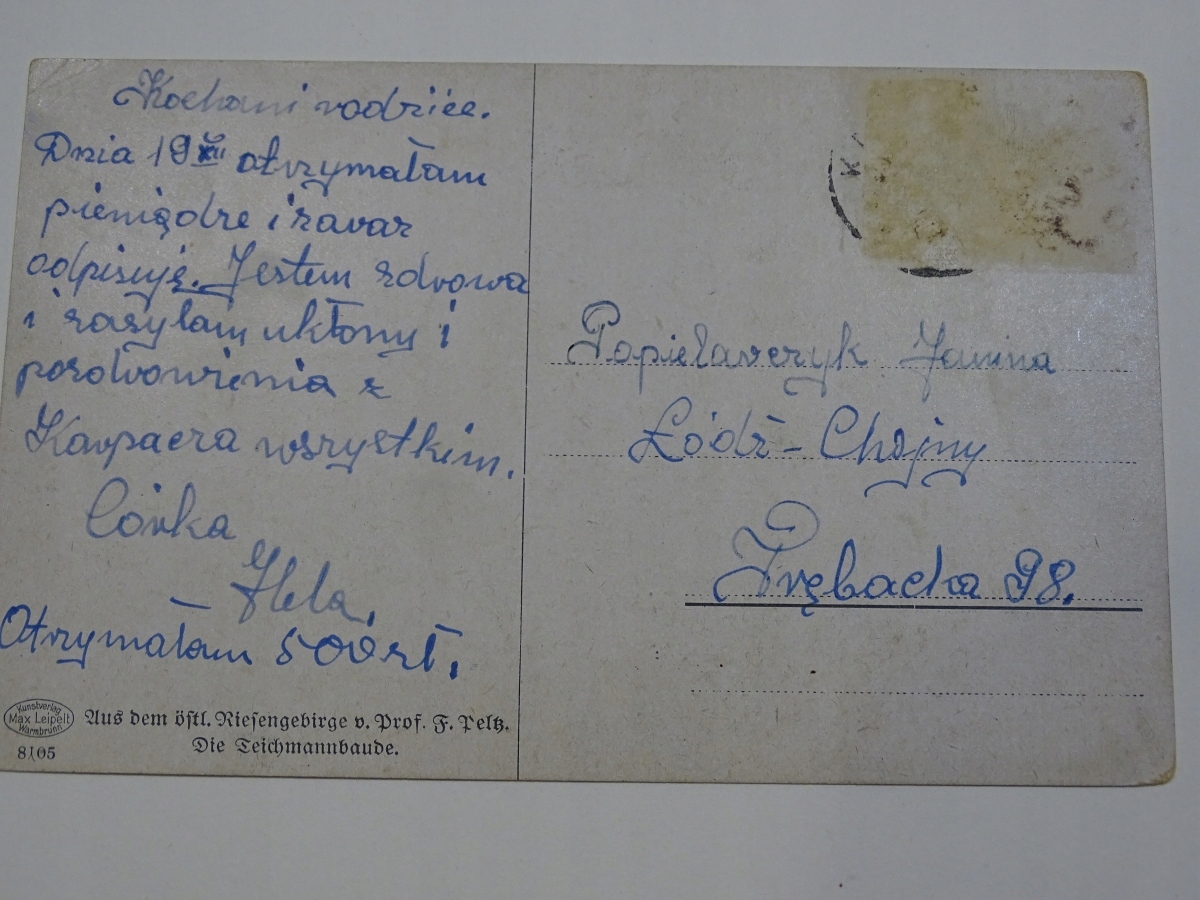 Kochani rodzice.
Dnia 19 XII otrzymałam
pieniądze i zaraz
odpisuję. Jestem zdrowa
i zasyłam ukłony i
pozdrowienia z
Karpacza wszystkim.
Córka
Hela.
Otrzymałam 500 zł.
Kunstverlag
Max Leipelt
Warmbrunn
8105
Aus dem östl. Riesengebirge v. Prof. F. Peltz.
Die Teichmannbaude.
K
Popielarczyk Janina
Łódź - Chojny
Trębacka 98.